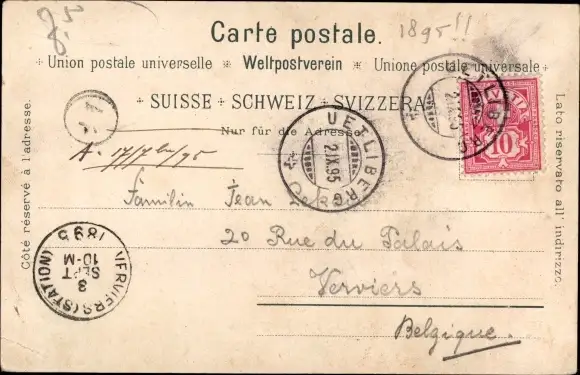 8.5
1895!!
Carte postale.
Union postale universelle Weltpostverein Unione postale universale
SUISSE SCHWEIZ SVIZZERA
Nur für die Adresse.
UETLIBERG
2.IX.95
UETLIBERG
2.IX.95
10
Familin Jean
20 Rue du Palais
Verviers
Belgique.
VERVIERS (STATION)
3
SEPT
10-M
1895
Côté réservé à l'adresse.
Lato riservato all' indirizzo.